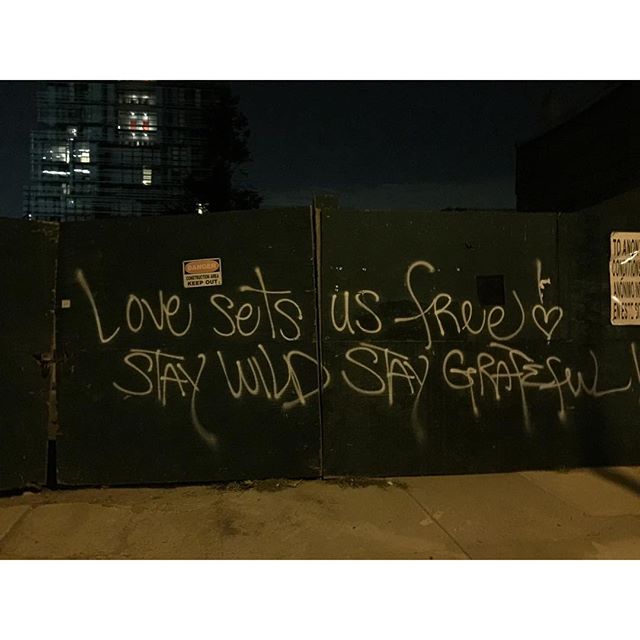 DANGER
CONSTRUCTION AREA
KEEP OUT
Love sets us free!
STAY WILD STAY GRATEFUL
TO ANON
CONDITION
ANONIMO NO
EN ESTE